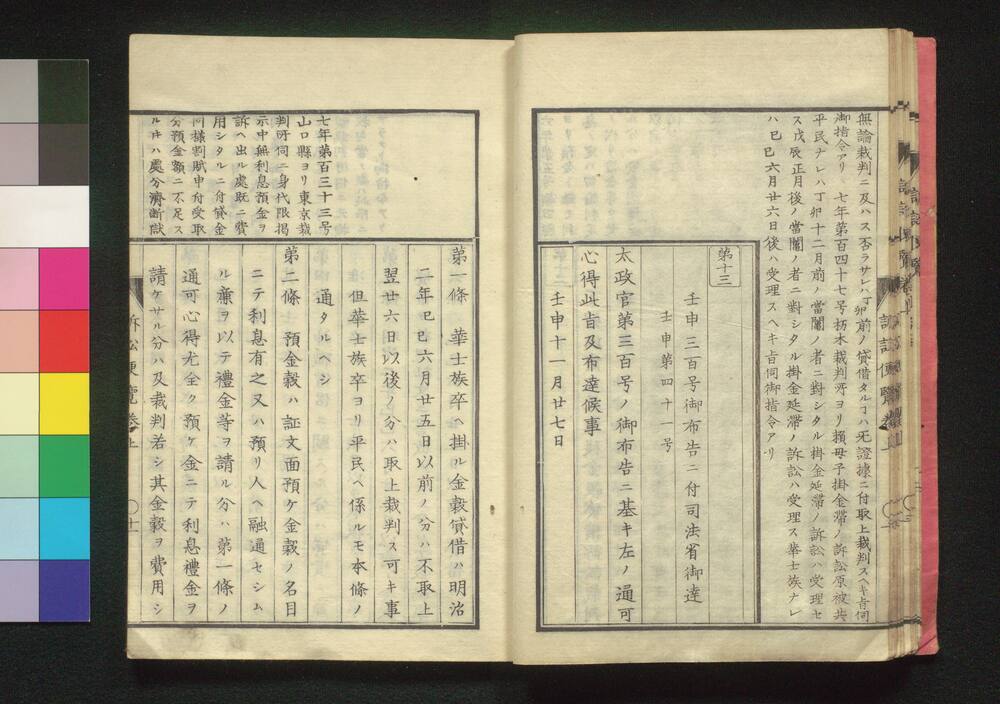 無論裁判ニ及ハス否ラサレハ丁卯前ノ貸借タルヿハ无證據ニ付取上裁判スヘキ旨伺
御指令アリ 七年第百四十七号栃木裁判所ヨリ損毋子掛金滞ノ訴訟原被共
平民ナレハ丁卯十二月前ノ當闇ノ者ニ對シタル掛金延滞ノ訴訟ハ受理セ
ス戊辰正月後ノ當闇ノ者ニ對シタル掛金延滞ノ訴訟ハ受理ス華士族ナレ
ハ己巳六月廿六日後ハ受理スヘキ旨伺御指令アリ
第十三
壬申三百号御布告ニ付司法省御達
壬申第四十一号
太政官第三百号ノ御布告ニ基キ左ノ通可
心得此旨及布達候事
壬申十一月廿七日
七年第百三十三号
山口縣ヨリ東京裁
判所伺ニ身代限掲
示中無利息預金ヲ
訴ヘ出ル處既ニ費
用シタルニ付貸金
同様割賦申付受取
分預金額ニ不足ス
ルキハ處分済断獄
第一條 華士族卒ヘ掛ル金穀貸借ハ明治
二年己巳六月廿五日以前ノ分ハ不取上
翌廿六日以後ノ分ハ取上裁判ス可キ事
但華士族卒ヨリ平民ヘ係ルモ本條ノ
通タルヘシ
第二條 預金穀ハ証文面預ケ金穀ノ名目
ニテ利息有之又ハ預リ人ヘ融通セシム
ル廉ヲ以テ禮金等ヲ請ル分ハ第一條ノ
通可心得尤全ク預ケ金ニテ利息禮金ヲ
請ケサル分ハ及裁判若シ其金穀ヲ費用シ
訴訟便覽巻上
十一